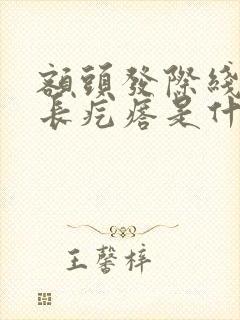 額頭發際綫
長疙瘩是什
王馨梓